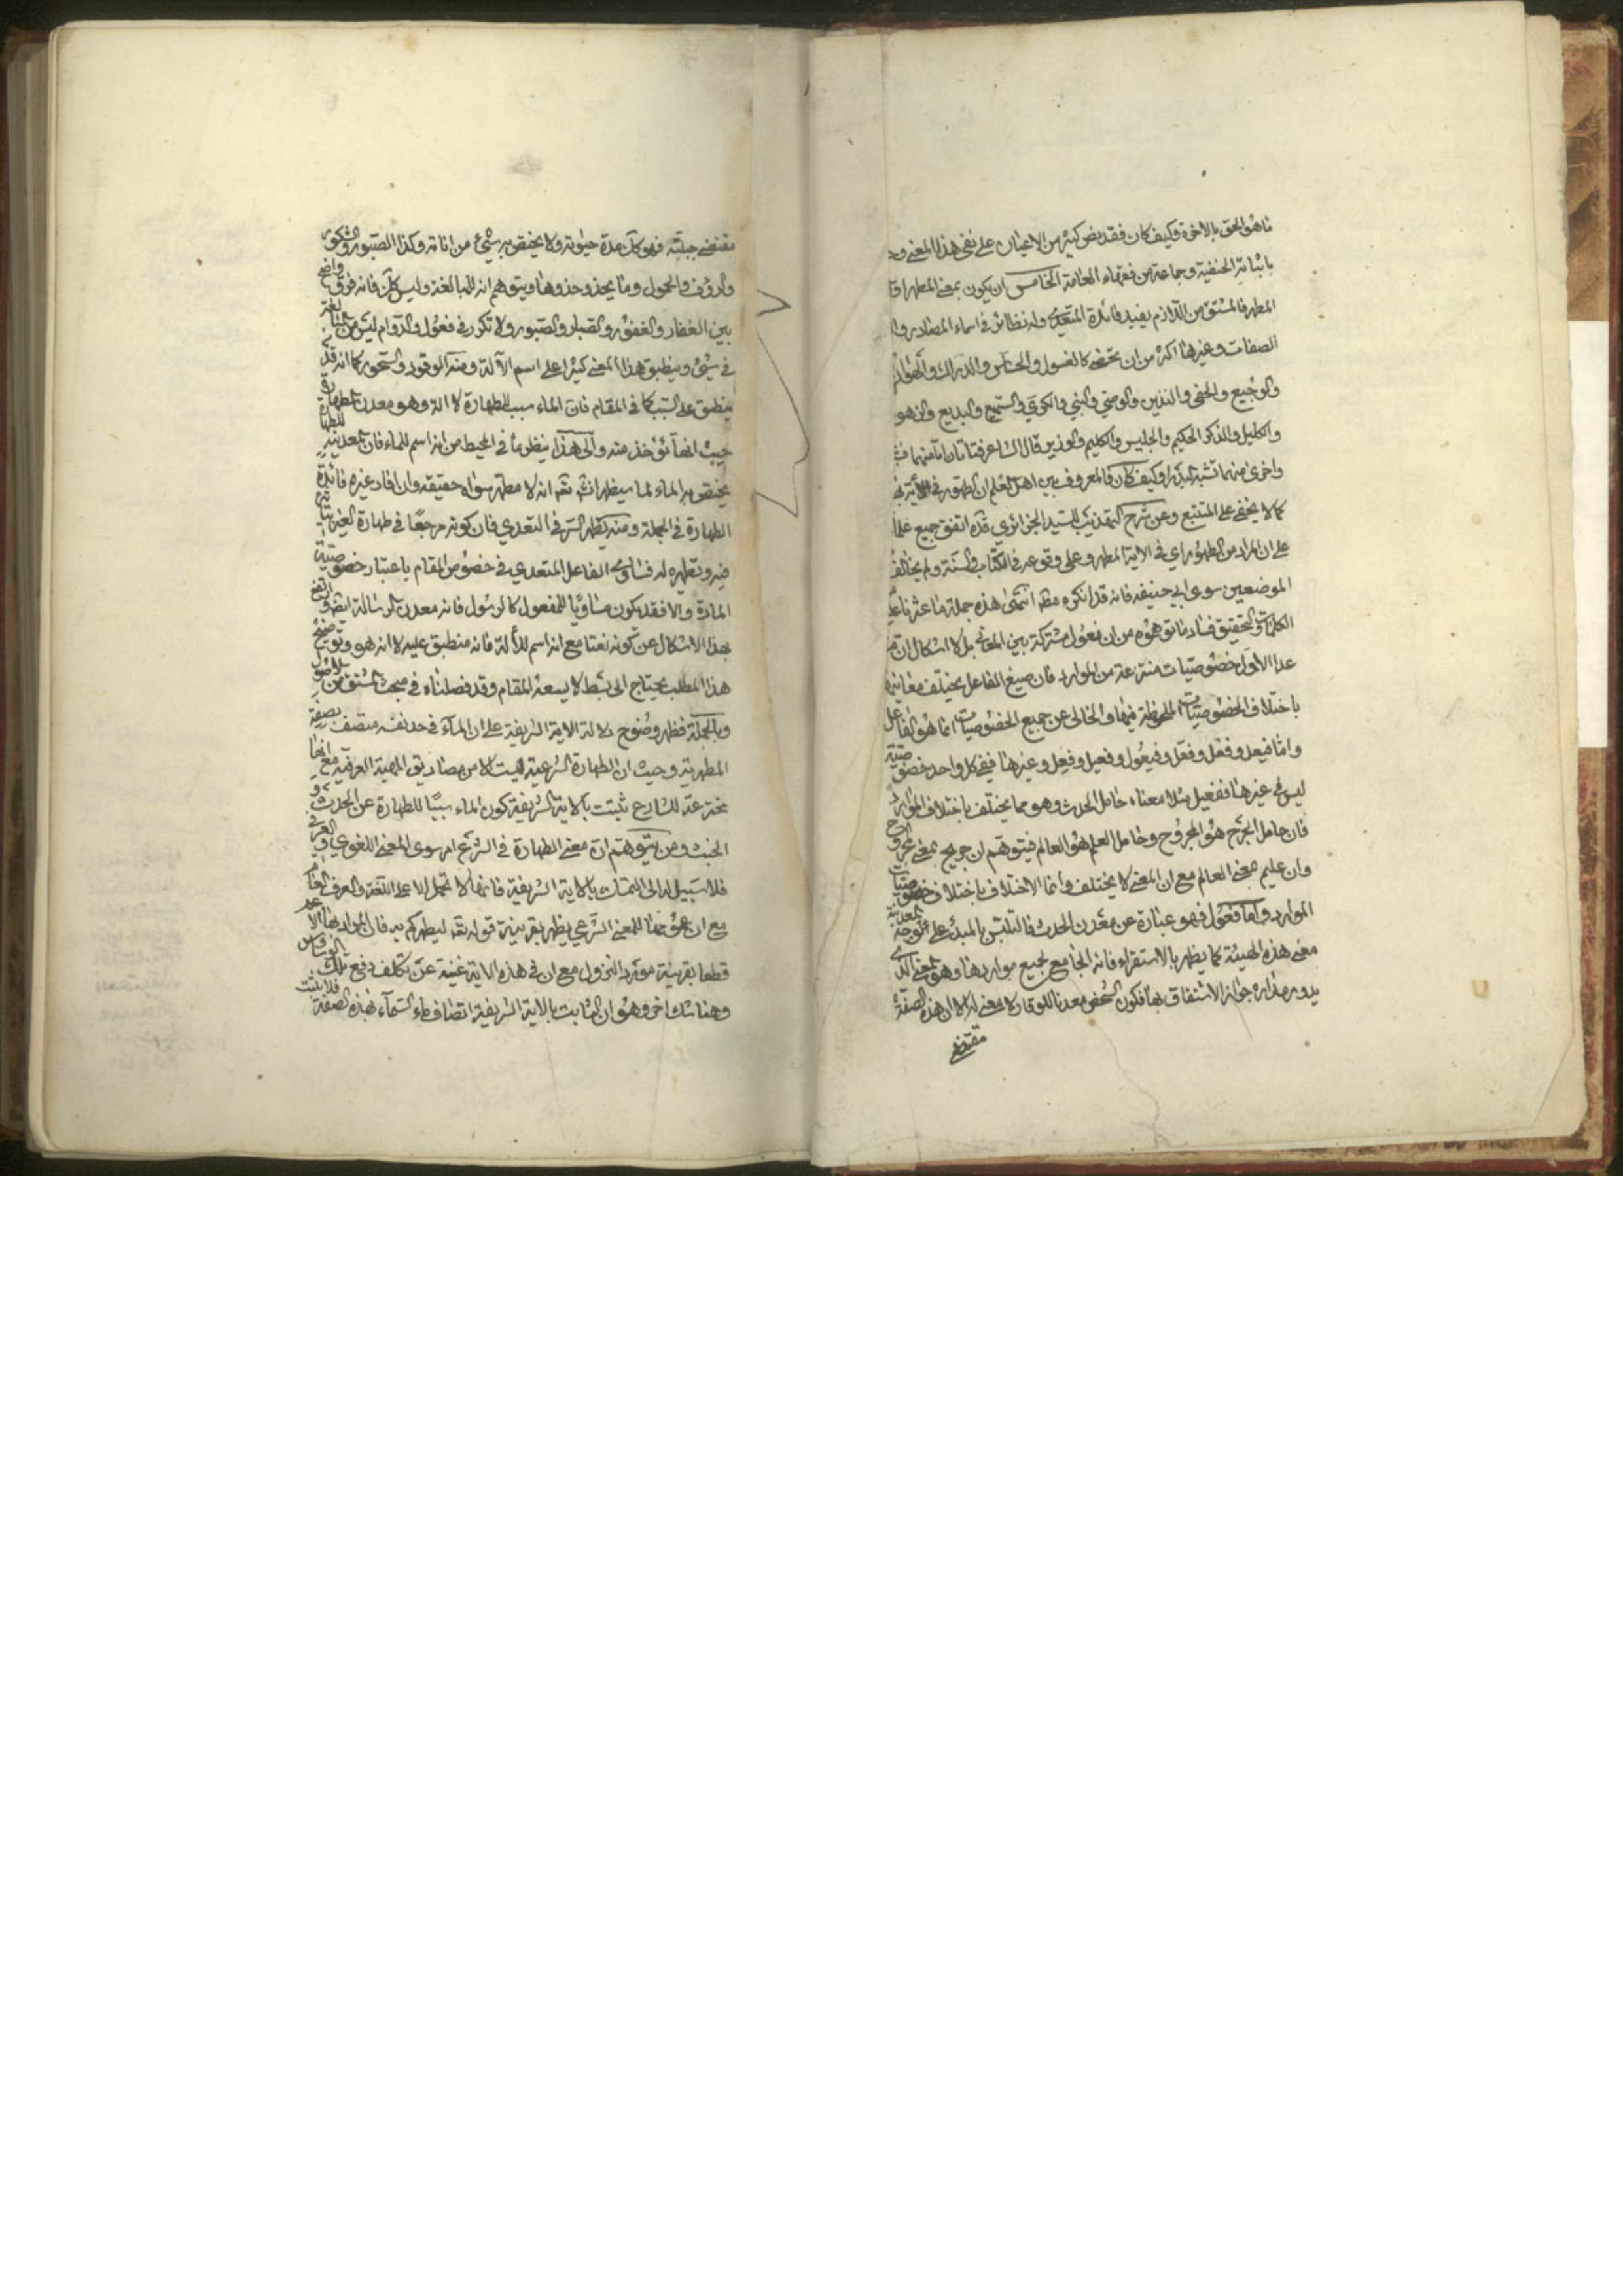 ناهو الحق بالاخوة وكيف كان فقد نص كثير من الاعيان على نفي هذا المعنى
باثباته الحنفية وجماعة من فقهاء العامة الخامس ان يكون بمعنى المطهر
المطهر فالمشتق من اللازم يفيد فائدة المتعدي وله نظائر في اسماء المصادر
الصفات وغيرها اكثر من ان تحصى كالغسول والدراك
والوجيع والخفي والنذير والوصي والنبي والسميع والبديع
والكليل والذكر الحكيم والجليس والكليم قال الشاعر فتاتان اما منهما
واخرى منهما تشبه البدرا وكيف كان فالمعروف بين اهل العلم ان الطهور في الآية
كما لا يخفى على المتتبع وعن شرح التهذيب للسيد الجزائري قده اتفق جميع
على ان المراد من الطهور اي في الاية المطهر وعلى وقوعه في الكتاب والسنة ولم يخالف
الموضعين سوى ابي حنيفه فانه قد انكره انتهى هذه جملة ما عثرنا
الكلمات والتحقيق فساد ما توهموه من ان فعول مشتركة بين المعاني بل لا اشكال ان
عدا الأول خصوصيات منتزعة من الموارد فان صيغ الفاعل يختلف معانيها
باختلاف الخصوصيات الملحوظة فيها والخالي عن جميع الخصوصيات انما هو الفاعل
واما فيعل وفعل وفعول وفعيل وغيرها ففي كل واحد خصوصية
ليس في غيرها ففعيل مثلا معناه حامل الحدث وهو مما يختلف باختلاف الموارد
فان حامل الجرح هو المجروح وحامل العلم هو العالم فيتوهم ان جريح بمعنى مجروح
وان عليم بمعنى العالم مع ان المعنى لا يختلف وانما الاختلاف باختلاف خصوصيات
الموارد واما فعول فهو عبارة عن معدن الحدث فالتلبس بالمبدء على وجه المعدنية
معنى هذه الهيئة كما يظهر بالاستقراء فانه الجامع لجميع مواردها وهو المعنى الذي
يدور مداره جواز الاشتقاق بها فكون الشخص معدنا للوقار لا معنى له الا ان هذه الصفة
مقتضى
مقتضى جبلته فهو كك مدة حيوته ولا يختص به شيئ من اناته وكذا الصبور والشكور
والرؤف والحمول وما يحذو حذوها ويتوهم انه للمبالغة وليس كك فانه فرق واضح
بين الغفار والغفور والصبار والصبور ولا تكرر في فعول والدوام ليس من المبالغة
في شيئ وينطبق هذا المعنى كثيرا على اسم الآلة ومنه الوقود والسحور كما انه قد
ينطبق على السبب كما في المقام فان الماء سبب للطهارة لا الة وهو معدن للطهارة
حيث انها تؤخذ منه والى هذا ينظر ما في المحيط من انه اسم للماء فان المعدنية للطهارة
يختص بها الماء لما سيظهر انش تعه انه لا مطهر سواه حقيقه وان افاد غيره فائدة
الطهارة في الجملة ومنه يظهر السر في التعدي فان كونه مرجعا في طهارة الغير
وتطهيره له فتساوى الفاعل المتعدي في خصوص المقام باعتبار خصوصية
المادة والا فقد يكون مساويا للمفعول كالرسول فانه معدن الرسالة واتضح
بهذا الاشكال عن كونه نعتا مع انه اسم للآلة فانه منطبق عليه لا انه هو وتوضيح
هذا المطلب يحتاج الى بسط لا يسعه المقام وقد فصلناه في مبحث المشتق من الاصول
وبالجملة فظهر وضوح دلالة الاية الشريفة على ان الماء في حد نفسه متصف بصفة
المطهرية وحيث ان الطهارة الشرعية ليست الا من مصاديق المهية العرفية مع انها
مخترعة للشارع ثبتت بالاية الشريفة كون الماء سببا للطهارة عن الحدث و
الخبث ومن يتوهم ان معنى الطهارة في الشرع امر سوى المعنى اللغوي والعرفي
فلا سبيل له الى التمسك بالاية الشريفة فانها لا تحمل الا على اللغة والعرف العام
مع ان هو هنا للمعنى الشرعي يظهر بقرينة قوله تعه ليطهركم به فان المراد بها الاعم
قطعا بقرينة مورد النزول مع ان في هذه الاية غنية عن تكلف دفع تلك الوساوس
وهنا شك اخر وهو ان الثابت بالاية الشريفة اتصاف ماء السماء بهذه الصفة فلا يثبت